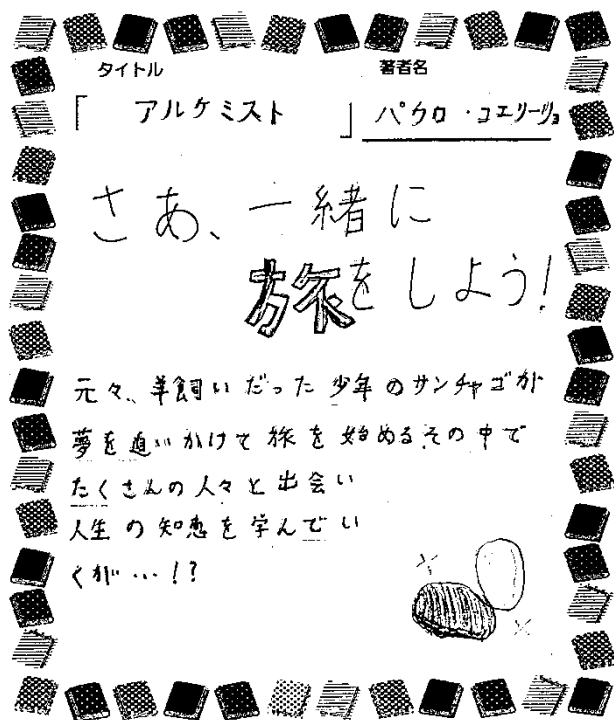 タイトル 著者名
「 アルケミスト 」 パウロ・コエリーリョ
さあ、一緒に
旅をしよう!
元々、羊飼いだった少年のサンチャゴが
夢を追いかけて旅を始める。その中で
たくさんの人々と出会い
人生の知恵を学んでい
くが…!?